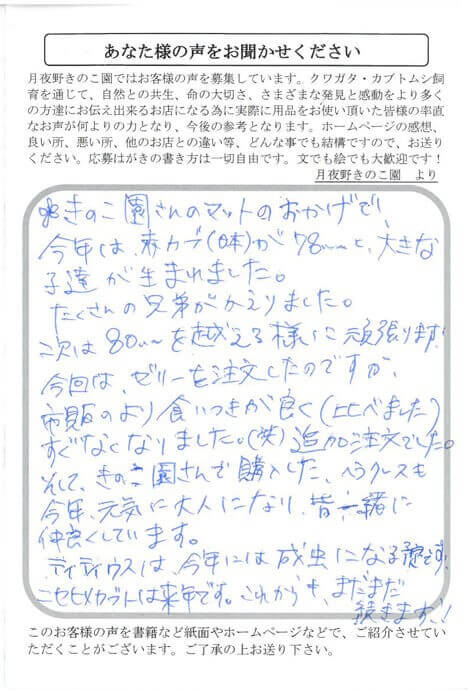 あなた様の声をお聞かせください
月夜野きのこ園ではお客様の声を募集しています。クワガタ・カブトムシ飼
育を通じて、自然との共生、命の大切さ、さまざまな発見と感動をより多く
の方達にお伝え出来るお店になる為に実際に用品をお使い頂いた皆様の率直
なお声が何よりの力となり、今後の参考となります。ホームページの感想、
良い所、悪い所、他のお店との違い等、どんな事でも結構ですので、お送り
ください。応募はがきの書き方は一切自由です。文でも絵でも大歓迎です！
月夜野きのこ園 より
きのこ園さんのマットのおかげで、
今年は、赤カブ(日本)が78mmと、大きな
子達が生まれました。
たくさんの兄弟がかえりました。
次は80mmを越える様に頑張ります
今回は、ゼリーを注文したのですが、
市販のより食いつきが良く(比べました)
すぐなくなりました。(笑)追加注文でした。
そして、きのこ園さんで購入した、ヘラクレスも
今年、元気に大人になり、皆一緒に
仲良くしています。
ティティウスは、今年には成虫になる予定です
ニセヒメカブトは来年です。これからも、まだまだ
続きます、!
このお客様の声を書籍など紙面やホームページなどで、ご紹介させてい
ただくことがございます。ご了承の上お送り下さい。